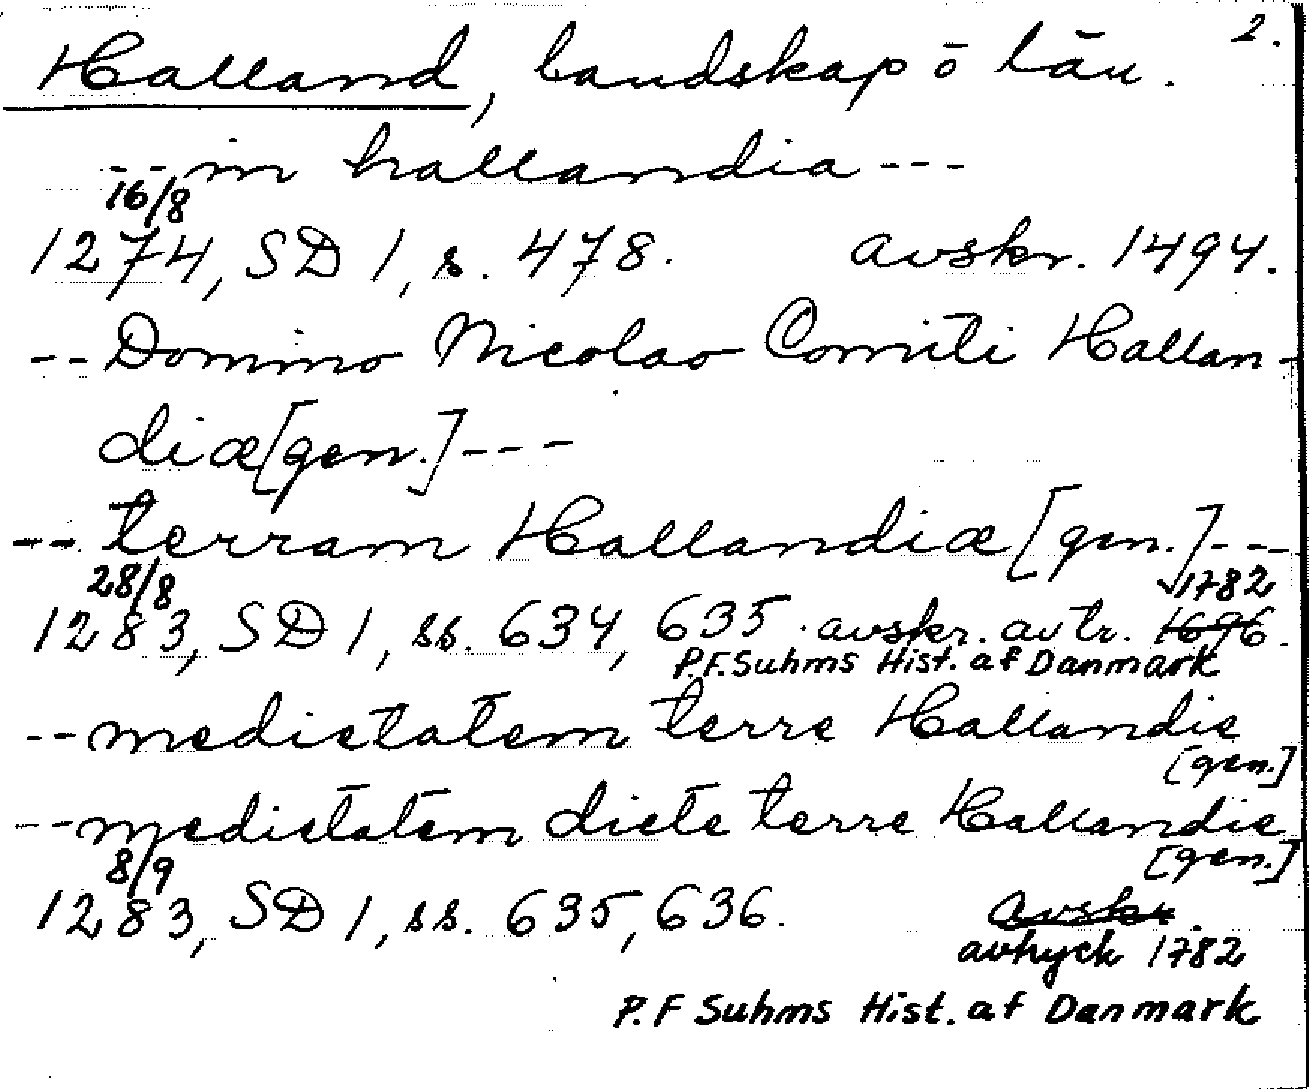 2.
Halland, landskap ō län.
--- in hallandia ---
16/8
1274, SD 1, s. 478. avskr. 1494.
-- Domino Nicolao Comiti Hallan-
diæ [gen.] ---
-- terram Hallandiæ [gen.] ---
28/8 1782
1283, SD 1, ss. 634, 635. avskr. avtr. 1696.
P.F. Suhms Hist. af Danmark
-- medietatem terre Hallandie
[gen.]
-- medietatem dicte terre Hallandie
[gen.]
8/9
1283, SD 1, ss. 635, 636. avskr.
avtryck 1782
P.F Suhms Hist. af Danmark